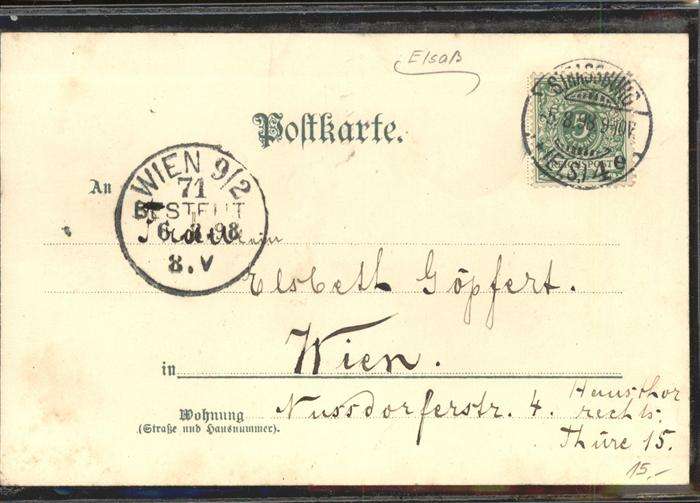 Elsaß
Postkarte.
STRASSBURG
5.8.98.9-10V.
*(ELS) 4.9
5
REICHSPOST
WIEN 9/2
71
BESTELLT
6.8.98
8.V
An Fräulein
Elsbeth Göpfert.
in Wien.
Wohnung Nussdorferstr. 4. Hausthor
rechts.
(Straße und Hausnummer).
Thüre 15.
15,-